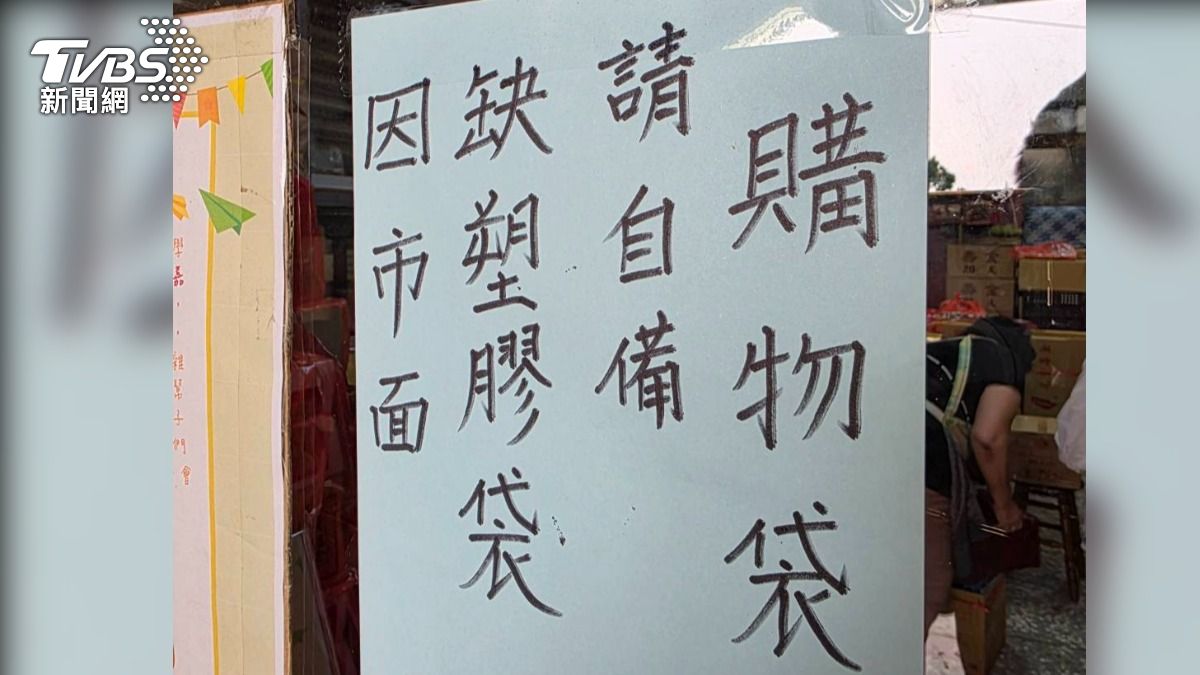 TVBS
新聞網
因市面
缺塑膠袋
請自備
購物袋